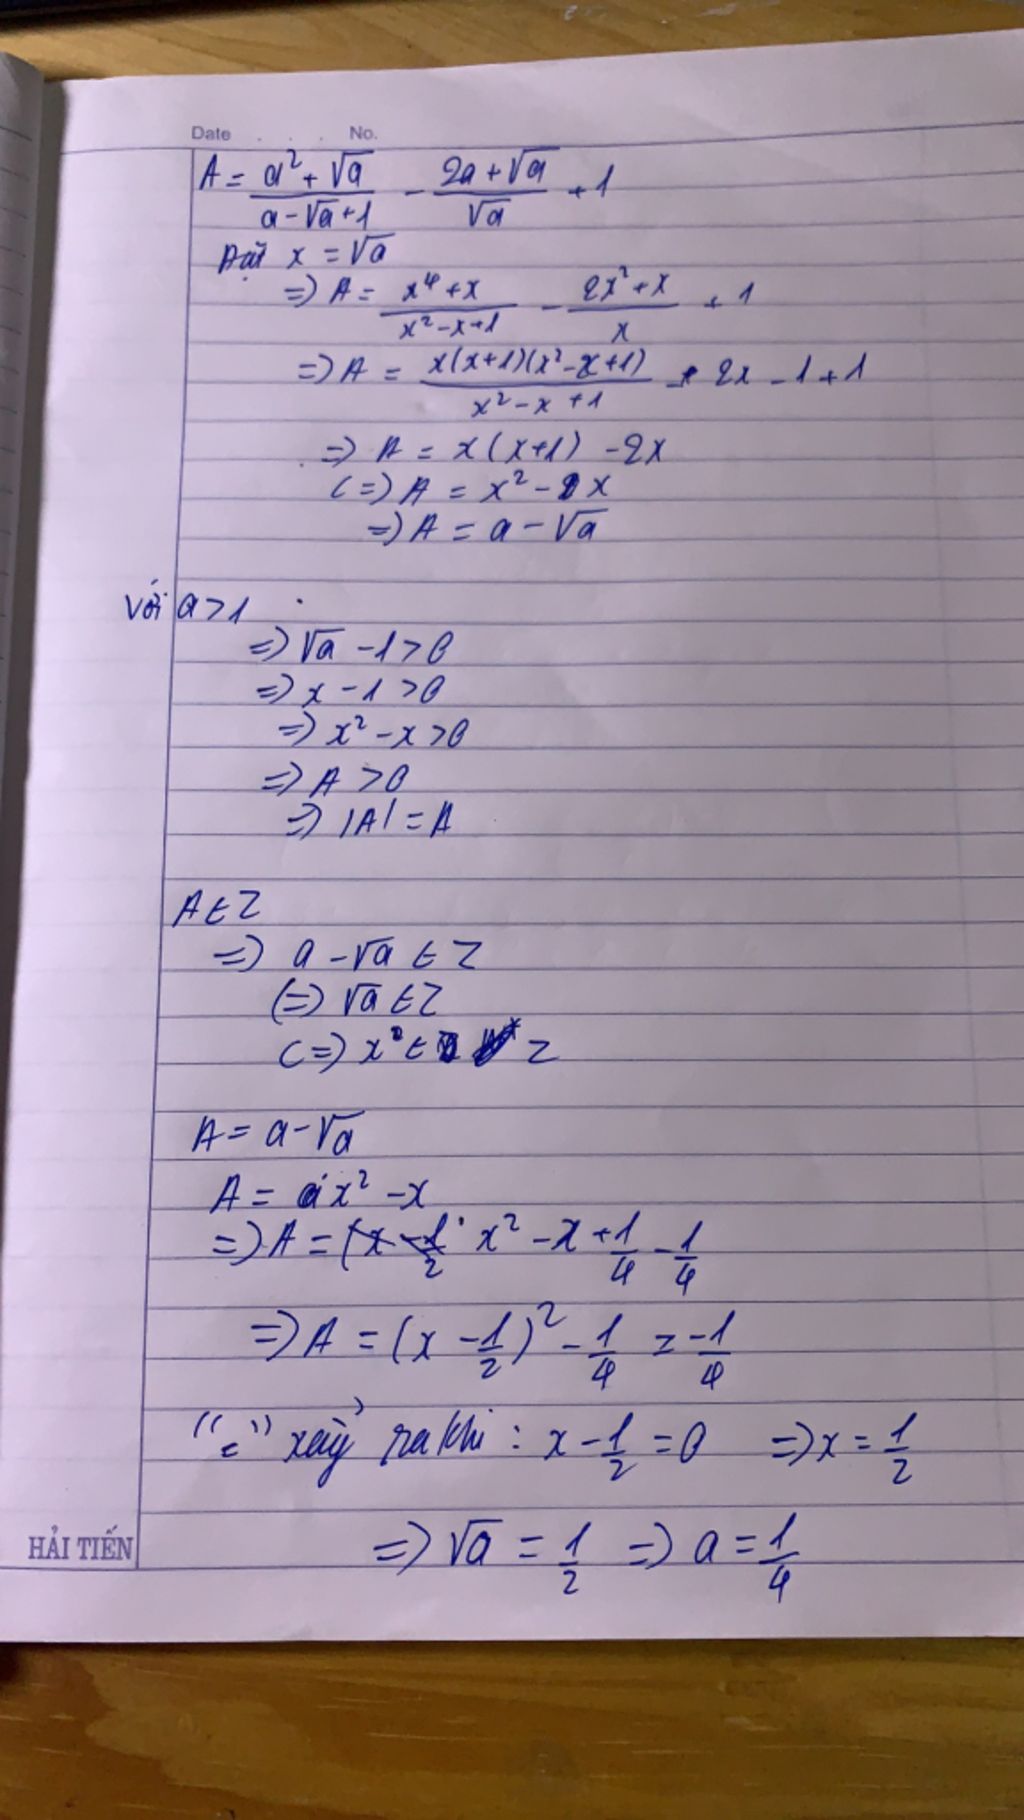 Date . . . No.
A = \frac{a² + √a}{a - √a + 1} - \frac{2a + √a}{√a} + 1
Đặt x = √a
=> A = \frac{x⁴ + x}{x² - x + 1} - \frac{2x² + x}{x} + 1
=> A = \frac{x(x+1)(x² - x + 1)}{x² - x + 1} - 2x - 1 + 1
=> A = x(x+1) - 2x
<=> A = x² - x
=> A = a - √a
Với a > 1
=> √a - 1 > 0
=> x - 1 > 0
=> x² - x > 0
=> A > 0
=> |A| = A
A ∈ Z
=> a - √a ∈ Z
<=> √a ∈ Z
<=> x² ∈ Z
A = a - √a
A = x² - x
=> A = x² - x + \frac{1}{4} - \frac{1}{4}
=> A = (x - \frac{1}{2})² - \frac{1}{4} = -\frac{1}{4}
"=" xảy ra khi : x - \frac{1}{2} = 0 => x = \frac{1}{2}
=> √a = \frac{1}{2} => a = \frac{1}{4}
HẢI TIẾN